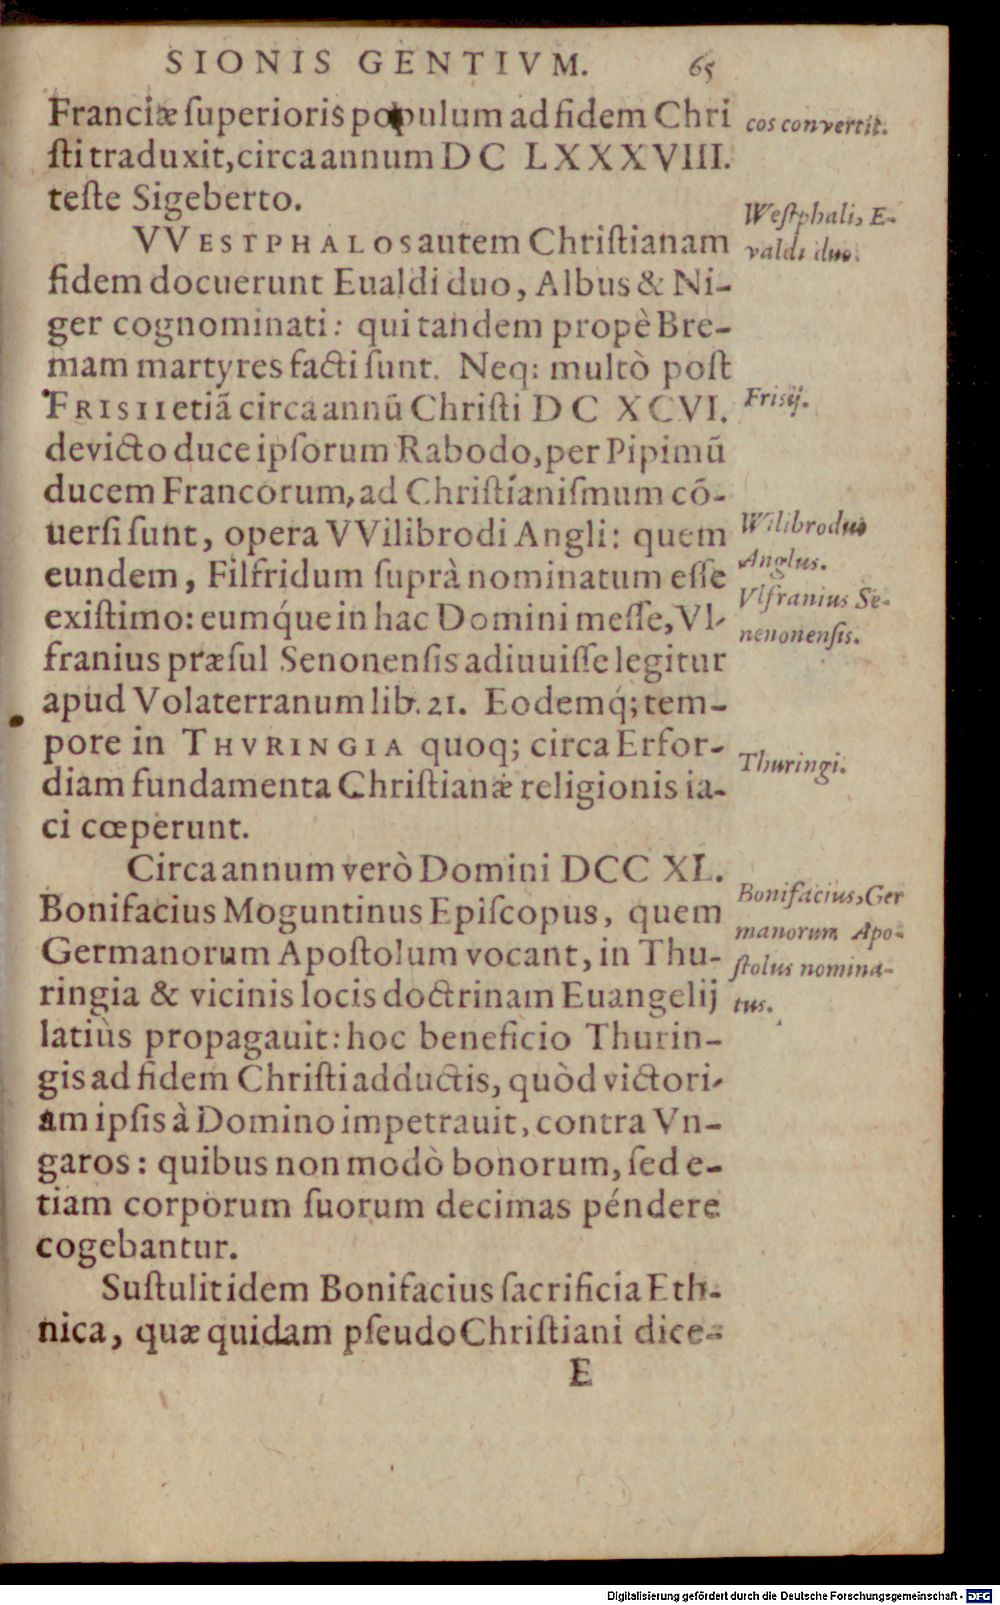 SIONIS GENTIVM. 65
Franciæ ſuperioris populum ad fidem Chri
ſti traduxit, circa annum DC LXXXVIII.
teſte Sigeberto.
cos convertit.
VVESTPHALOS autem Chriſtianam
fidem docuerunt Eualdi duo, Albus & Ni-
ger cognominati: qui tandem propè Bre-
mam martyres facti ſunt. Neq; multò poſt
FRISII etiã circa annũ Chriſti DC XCVI.
devicto duce ipſorum Rabodo, per Pipimũ
ducem Francorum, ad Chriſtianiſmum cõ-
uerſi ſunt, opera VVilibrodi Angli: quem
eundem, Filfridum ſuprà nominatum eſſe
exiſtimo: eumq́ue in hac Domini meſſe, Vl-
franius præſul Senonenſis adiuuiſſe legitur
apud Volaterranum lib. 21. Eodemq́; tem-
pore in THVRINGIA quoq; circa Erfor-
diam fundamenta Chriſtianæ religionis ia-
ci cœperunt.
Weſtphali, E-
valdi duo.
Frisij.
Wilibrodus
Anglus.
Vlfranius Se-
nenonenſis.
Thuringi.
Circa annum verò Domini DCC XL.
Bonifacius Moguntinus Epiſcopus, quem
Germanorum Apoſtolum vocant, in Thu-
ringia & vicinis locis doctrinam Euangelij
latiùs propagauit: hoc beneficio Thurin-
gis ad fidem Chriſti adductis, quòd victori-
am ipſis à Domino impetrauit, contra Vn-
garos: quibus non modò bonorum, ſed e-
tiam corporum ſuorum decimas péndere
cogebantur.
Bonifacius, Ger
manorum Apo-
ſtolus nomina-
tus.
Suſtulit idem Bonifacius ſacrificia Eth-
nica, quæ quidam pſeudoChriſtiani dice-
E
Digitalisierung gefördert durch die Deutsche Forschungsgemeinschaft - DFG